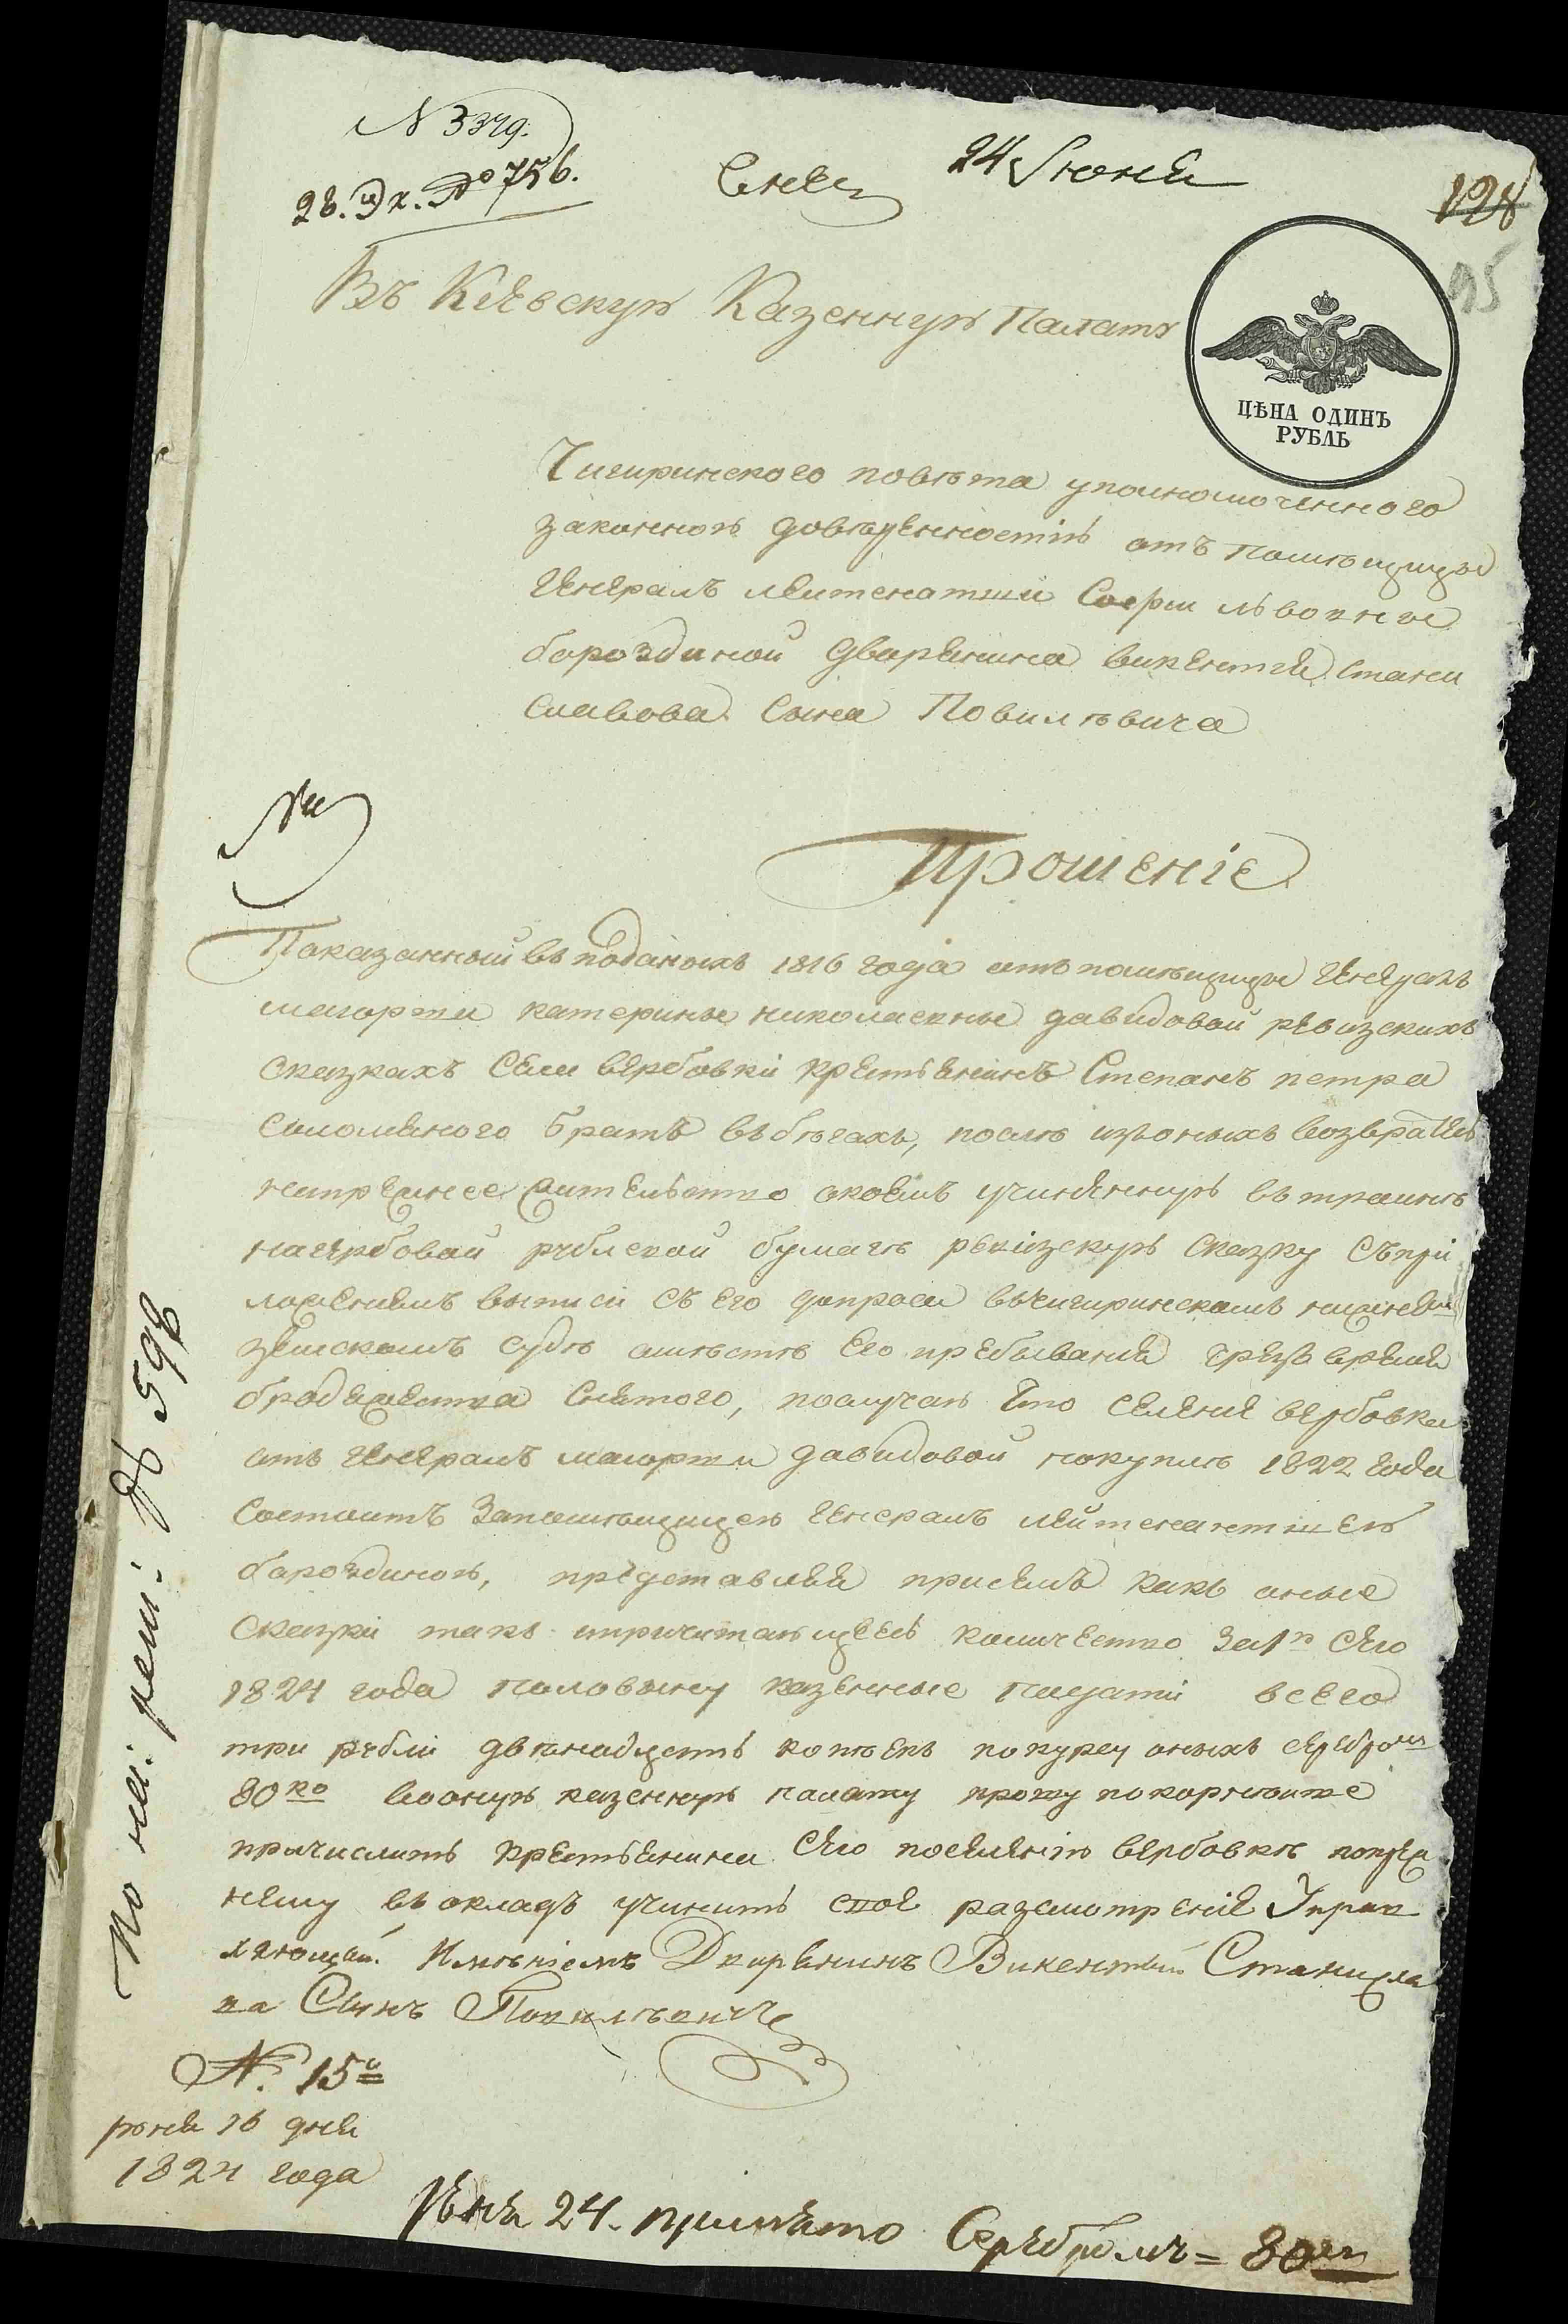 N 3379.
24 Июня
28. Эк. № 756.
128
95
Въ Киевскую Казенную Палату
ЦѢНА ОДИНЪ
РУБЛЬ
Чигиринского повѣта уполномоченного
законною довѣренностію отъ помѣщицы
Генералъ лейтенатши Софіи львовны
бороздиной дворянина викентія Стани
славова Сына Повилѣвича
Прошеніе
Показанный въ поданыхъ 1816 года отъ помѣщицы Генералъ
маіорши катерины николаевны давидовой ревизскихъ
сказкахъ села вербовки крестьянинъ Степанъ петра
соломяного братъ въ бѣгахъ, послѣ изъ оныхъ возвратясь
на прежнее жительство о коемъ учиненную
на гербовой рублевой бумагѣ ревизскую сказку съ при
ложеніемъ выписи съ его допроса въ чигиринскомъ нижнемъ
земскомъ судѣ о мѣстѣ его пребыванія чрезъ время
бродяжества снятого, по случаю что селеніе вербовка
отъ Генералъ маіорши давидовой покупкѣ 1822 года
состоитъ за помѣщицею генералъ лейтенантшею
бороздиною, представляя при семъ какъ оные
сказки такъ и причитающееся количество за 1ю сего
1824 года половыну казенные податі всего
три рубли двѣнадцеть копѣекъ по курсу оныхъ серебромъ
80 ко во оную казенную палату прошу покорнѣйше
причислить крестьянина сего по селенію вербовкѣ по преж
нему въ окладъ учинить своя разсмотреніе Управ
ляющей Имѣніемъ Дворянинъ Викентый Станисла
ва Сынъ Повилѣвичъ
№. 15
Юня 16 дня
1824 года
Юня 24. принято Серебромъ = 80
По на: реш: № 598